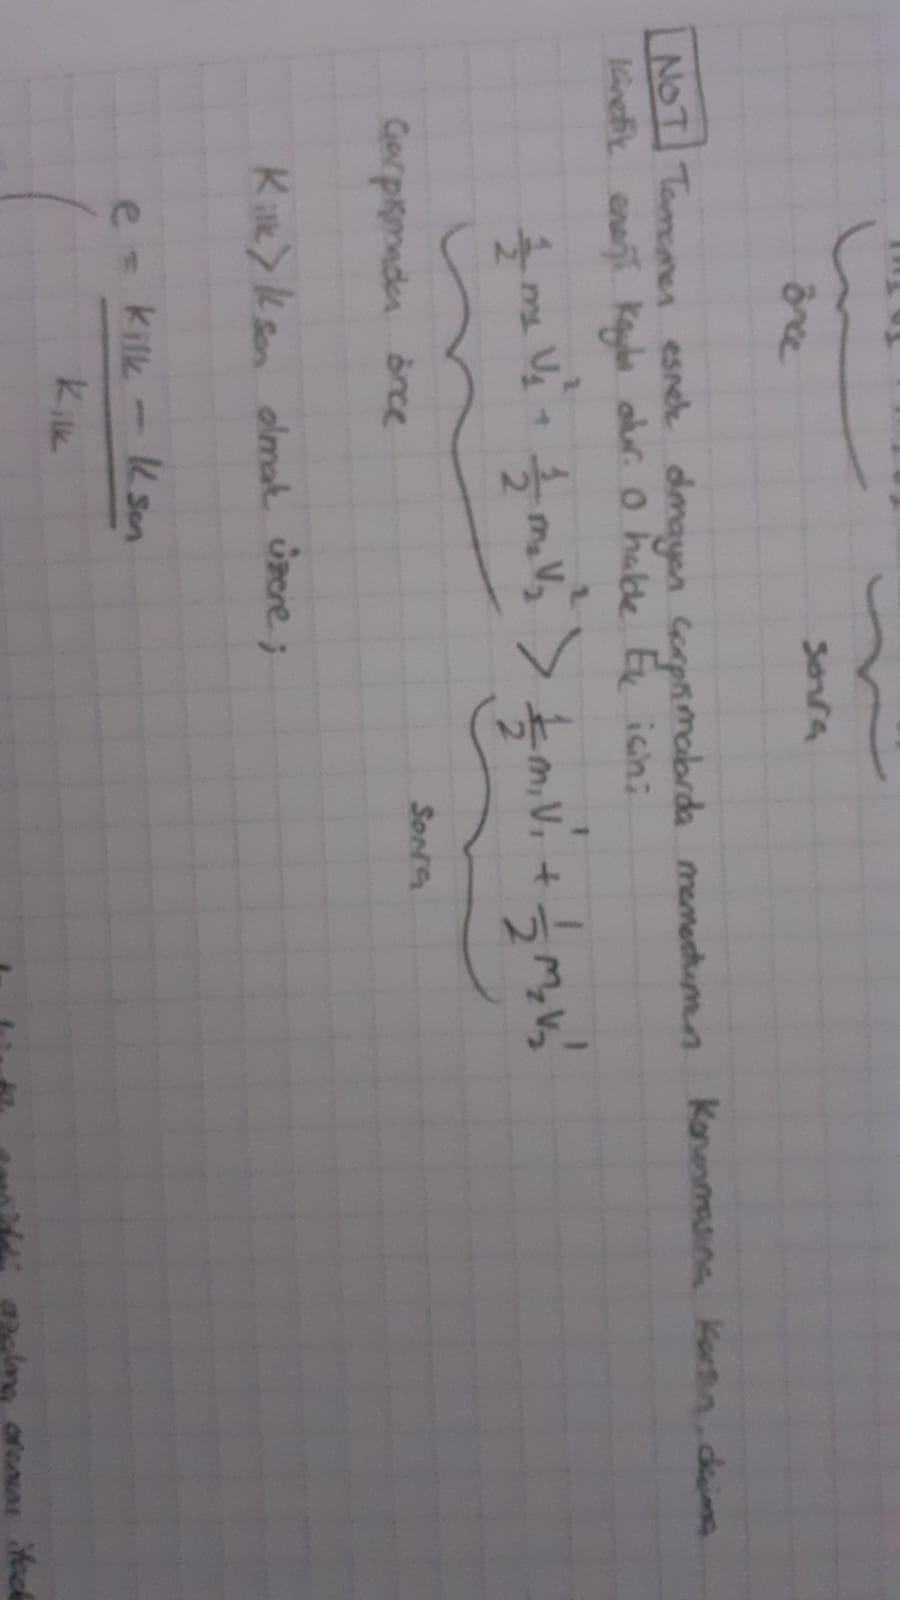 önce
sonra
NOT Tamamen esnek olmayan çarpışmalarda momentumun korunmasına karşın, daima
kinetik enerji kaybı olur. O halde Ek için;
1/2 m1 V1² + 1/2 m2 V2² > 1/2 m1 V1' + 1/2 m2 V2'
Çarpışmadan önce
sonra
Kilk > Kson olmak üzere;
e = Kilk - Kson
Kilk
azalma oranını